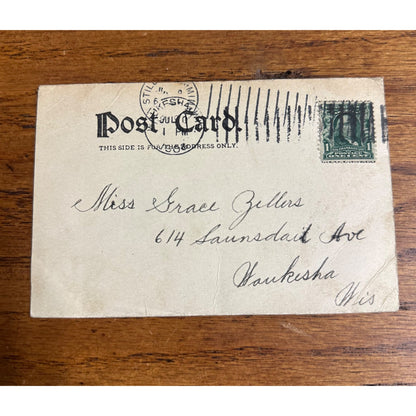 STIL
Post Card.
THIS SIDE IS FOR THE ADDRESS ONLY.
Miss Grace Zellers
614 Saunsdail Ave
Waukesha
Wis